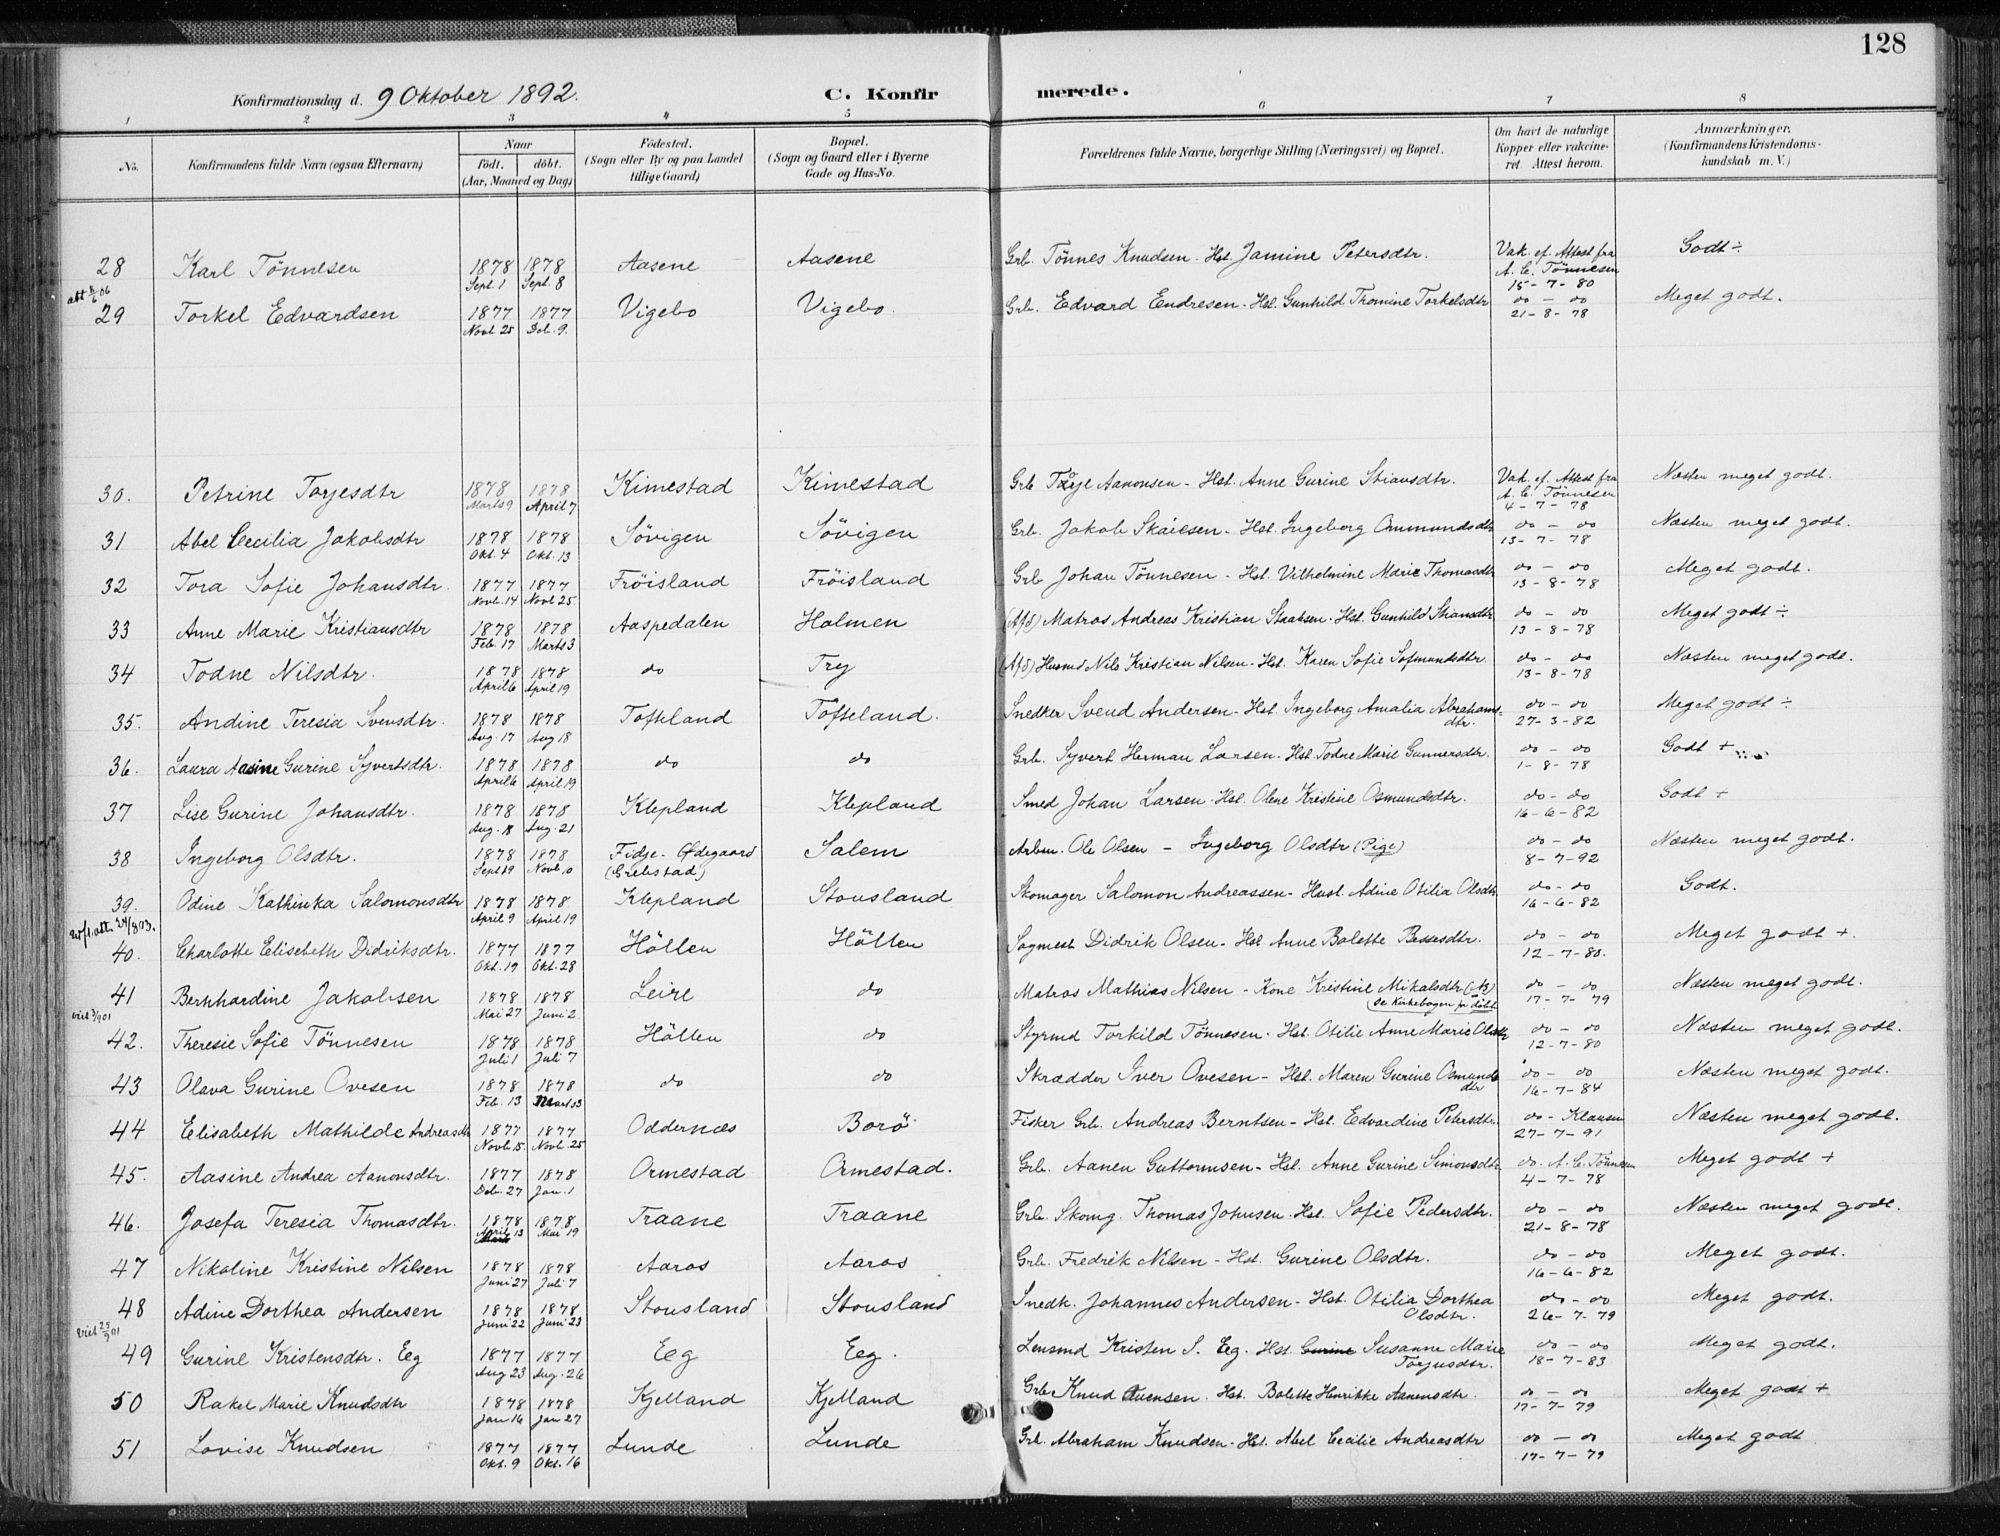 128
Konfirmationsdag d. 9 Oktober 1892. C. Konfirmerede.
1 2 3 4 5 6 7 8
No. Konfirmandens fulde Navn (ogsaa Efternavn) Naar født. døbt. (Aar, Maaned og Dag) Fødested. (Sogn eller By og paa Landet tillige Gaard) Bopæl. (Sogn og Gaard eller i Byerne Gade og Hus-No. Forældrenes fulde Navne, borgerlige Stilling (Næringsvei) og Bopæl. Om havt de naturlige Kopper eller vakcineret. Attest herom. Anmærkninger. (Konfirmandens Kristendomskundskab m. V.)
28 Karl Tönnesen 1878 Sept. 1 1878 Sept. 8 Aasene Aasene Grb. Tönnes Knudsen - Hst. Jamine Petersdtr. Vak. ef. Attest fra A. C. Tönnesen 15-7-80 Godt ÷
att 8/6 06
29 Torkel Edvardsen 1877 Novb. 25 1877 9. Vigebo Vigebo. Grb. Edvard Endresen - Hst. Gunhild Thomine Torkelsdtr do - do 21-8-78 Meget godt.
30. Petrine Torjesdtr 1878 Marts 9 1878 April 7 Kimestad Kimestad Grb Aanonsen - Hst. Anne Gurine Stiansdtr. Vak. ef. Attest fra A. C. Tönnesen 4-7-78 Næsten meget godt.
31 Abel Cecilia Jakobsdtr 1878 Okt. 4 1878 Okt. 13 Sövigen Sövigen Grb. Jakob - Hst. Ingeborg Ommundsdtr do - do 13-7-78 Næsten meget godt.
32 Tora Sofie Johansdtr. 1877 Novb. 14 1877 Novb 25. Fröisland Fröisland Grb Johan Tönnesen - Hst. Vilhelmine Marie Thomasdtr do - do 13-8-78 Meget godt.
33 Anne Marie Kristiansdtr 1878 Feb. 17 1878 Marts 3 Aaspedalen Holmen (Afd) Matros Andreas Kristian - Hst. Gunhild Stiansdtr do - do 13-8-78 Meget godt ÷
34 Todne Nilsdtr. 1878 April 6 1878 April 19 do Try (Afd) Husmd Nils Kristian Nilsen - Hst. Karen Sofie Sofmundsdtr. do - do 13-8-78 Næsten meget godt.
35. Andine Teresia Svensdtr. 1878 Aug. 17 1878 Aug 18 Tofteland Tofteland. Snedker Svend Andersen - Hst. Ingeborg Amalia Abrahamsdtr. do - do 27-3-82 Meget godt ÷
36. Laura Aasine Gurine Syvertsdtr. 1878 April 6 1878 April 19 do do Grb. Syvert Herman Larsen - Hst. Todne Marie Gunnersdtr. do - do 1-8-78 Godt +
37 Lise Gurine Johansdtr. 1878 Aug. 18 1878 Aug. 21 Klepland Klepland Smed Johan Larsen - Hst. Olene Kristine Osmundsdtr. do - do 16-6-82 Godt +
38 Ingeborg Olsdtr. 1878 Sept 19 1878 Novb. 10 Fidje - Ødegaard (Grebstad) Salem Arbm. Ole Olsen - Ingeborg Olsdtr (Pige) do - do 8-7-92 Næsten meget godt.
39. Odine Kathinka Salomonsdtr 1878 April 9 1878 April 19 Klepland Stousland Skomager Salomon Andreassen - Hust. Adine Otilia Olsdtr do - do 16-6-82 Godt.
att. 24/8 03.
40. Charlotte Elisebeth Didriksdtr. 1877 Okt. 19 1877 Okt. 28 Höllen Höllen Sogmest Didrik Olsen - Hst Anne Bolette Bessesdtr. do - do 12-7-80. Meget godt +.
41 Bernhardine Jakobsen 1878 Mai 27 1878 Juni 2. Leire do Matros Mathias Nilsen - Kone Kristine Mikalsdtr (se Kirkebogen döbt do - do 17-7-79 Næsten meget godt.
viet 3/9 01
42. Theresie Sofie Tönnesen 1878 Juli 1 1878 Juli 7 Höllen do Styrmd Torkild Tönnesen - Hst. Otilie Anne Marie Olsdtr do - do 12-7-80 Næsten meget godt.
43 Olava Gurine Ovesen 1878 Feb. 13 1878 Marts 3 do do Skrædder Iver Ovesen - Hst. Maren Gurine Osmundsdtr do - do 16-7-84 Næsten meget godt.
44 Elisabeth Mathilde Andreasdtr 1877 Novb. 15. 1877 Novb. 25 Oddernæs Borö Fisker Grb. Andreas Berntsen - Hst. Edvardine Petersdtr. do - Klausen 27-7-91 Næsten meget godt.
45. Aasine Andrea Aanonsdtr. 1877 Deb. 27 1878 Jan. 1 Ormestad Ormestad. Grb. Aanen Guttormsen - Hst. Anne Gurine Simonsdtr do. A. C. Tönnesen 4-7-78 Meget godt +
46. Josefa Teresia Thomasdtr. 1878 April 13 1878 Mai 19 Traane Traane Grb. Skomg. Thomas Johnsen - Hst. Sofie Pedersdtr. do - do 21-8-78 Næsten meget godt.
47 Nikoline Kristine Nilsen 1878 Juni 27 1878 Juli 7 Aaros Aaros Grb. Fredrik Nilsen - Hst. Gurine Olsdtr. do - do 16-6-82 Meget godt.
48 Adine Dorthea Andersen 1878 Juni 22 1878 Juni 23 Stousland Stousland Snedk. Johannes Andersen - Hst. Otilia Dorthea Olsdtr. do - do 26-7-79 Meget godt.
viet 25/9 01
49 Gurine Kristensdtr. Eeg 1877 Aug 23 1877 Aug. 26 Eeg Eeg. Lensmd Kristen S. Eeg. Hst. Gurine Susanne Marie Torjusdtr. do - do 18-7-83 Meget godt.
50 Rakel Marie Knudsdtr 1878 Jan 16 1878 Jan 27 Kjelland Kjelland Grb. Knud - Hst. Bolette Henrikke Aanensdtr. do - do 17-7-79 Meget godt +
51 Lovise Knudsen 1877 Okt. 9 1877 Okt. 16 Lunde Lunde Grb. Abraham Knudsen - Hst. Abel Cecilie Andreasdtr do - do 17-7-79 Meget godt